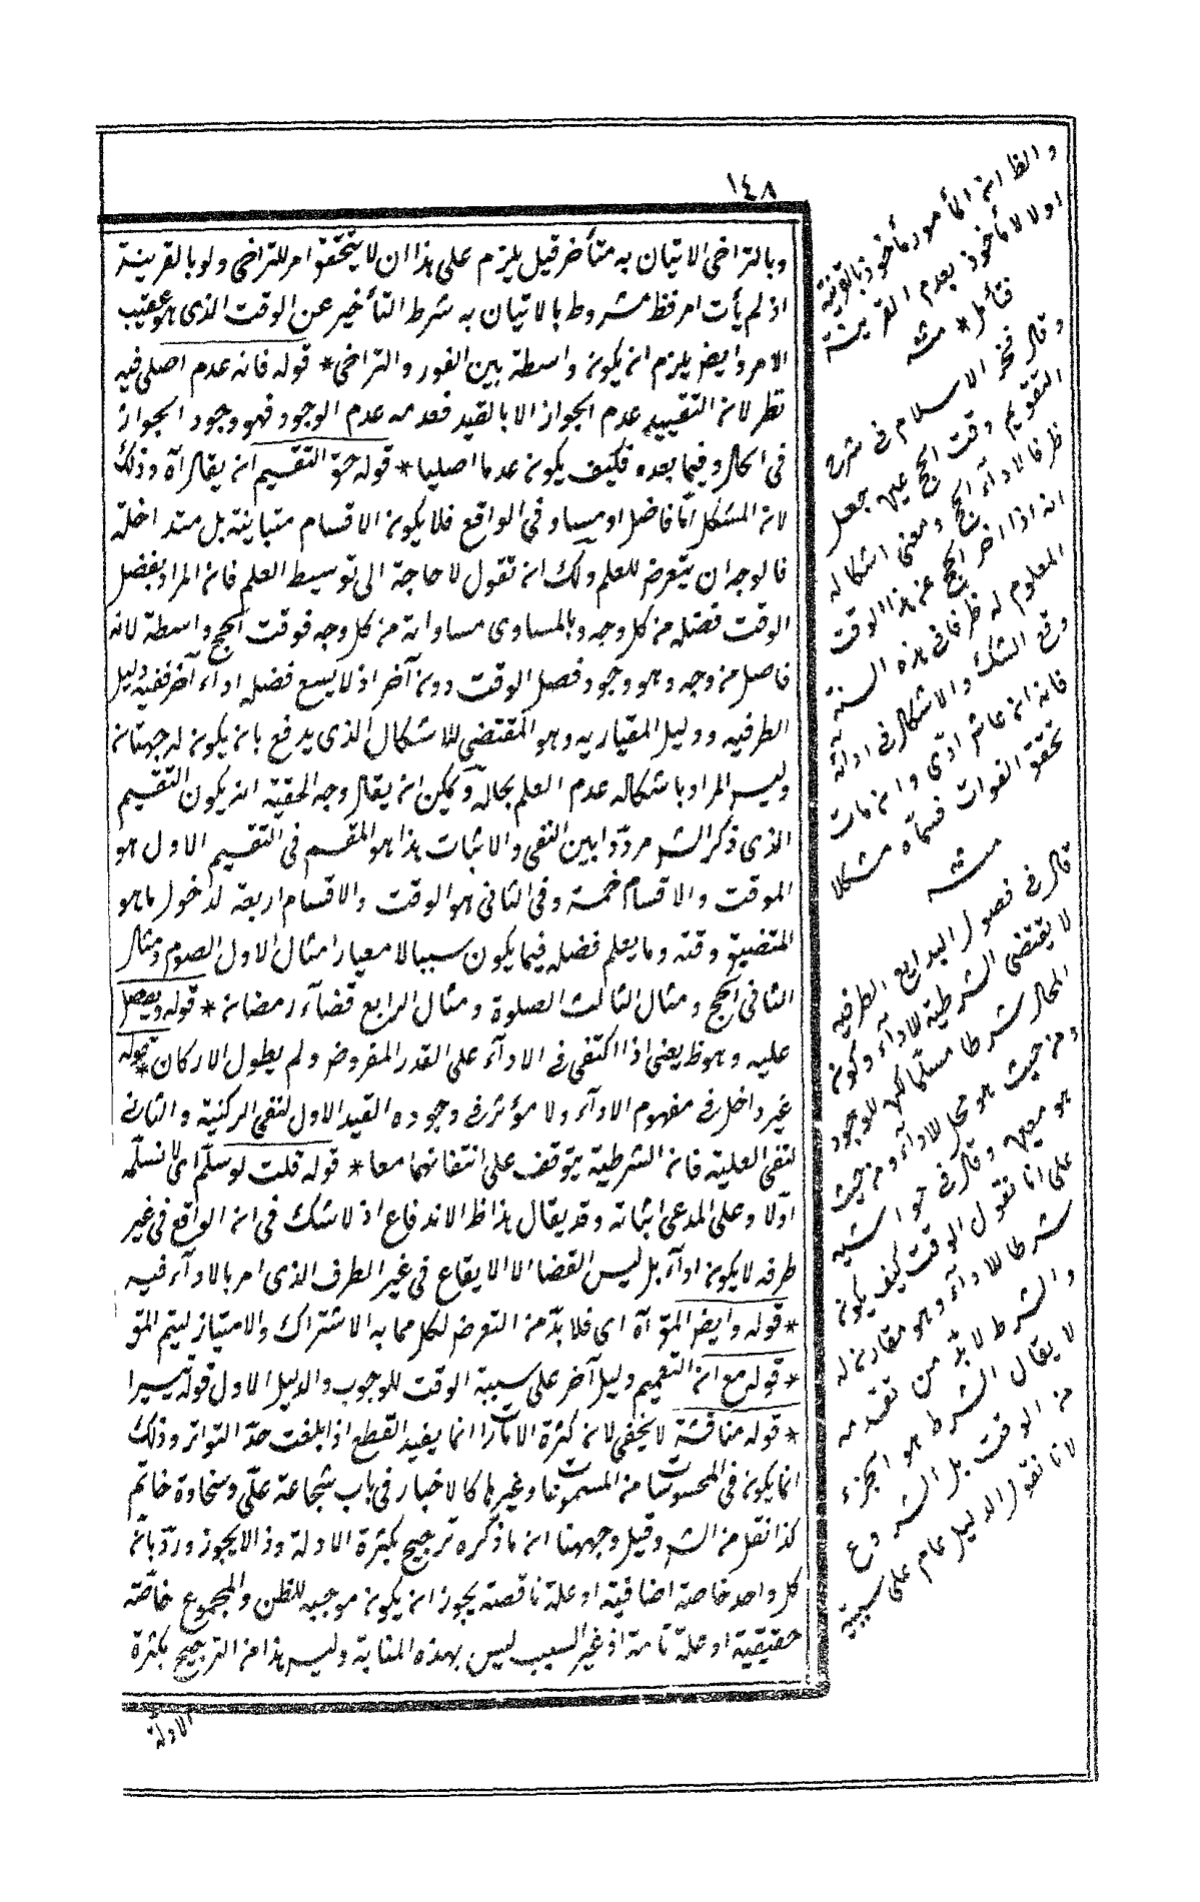 ١٤٨
وبالتراخى الاتيان به متأخر قيل يلزم على هذا ان لا يتحقق امر للتراخى ولو بالقرينة
اذ لم يأت امر قط مشروط بالاتيان به شرط التأخير عن الوقت الذى هو عقيب
الامر وايض يلزم ان يكون واسطة بين الفور والتراخى * قوله فانه عدم اصلى فيه
نظر لان التقييد عدم الجواز الا بالقيد فعدمه عدم الوجود فهو وجود الجواز
فى الحال وفيما بعده فكيف يكون عدما اصليا * قوله حق التقسيم ان يقال آه وذلك
لان المشكل اما فاضل او مساو فى الواقع فلا يكون الاقسام متباينة بل متداخلة
فالوجه ان يتعرض للعلم ولك ان تقول لا حاجة الى توسيط العلم فان المراد بفضل
الوقت فضله من كل وجه وبالمساوى مساواته من كل وجه فوقت الحج واسطة لانه
فاضل من وجه وهو وجود فصل الوقت دون آخر اذ لا يسع فضله اداء آخر ففيه دليل
الظرفيه ودليل المعياريه وهو المقتضى للاشكال الذى يدفع بان يكون له جهتان
وليس المراد باشكاله عدم العلم بحاله ويمكن ان يقال وجه الحقية ان يكون التقسيم
الذى ذكر الش مرددا بين النفى والاثبات هذا هو المقسم فى التقسيم الاول هو
الموقت والاقسام خمسة وفى الثانى هو الوقت والاقسام اربعة لدخول ما هو
المتضيق وقته وما يعلم فضله فيما يكون سببا لا معيارا مثال الاول الصوم ومثال
الثانى الحج ومثال الثالث الصلوة ومثال الرابع قضاء رمضان * قوله ويفضل
عليه وهو ظ يعنى اذا اكتفى فى الادآء على القدر المفروض ولم يطول الاركان * قوله
غير داخل فى مفهوم الادآء ولا مؤثر فى وجوده القيد الاول لنفى الركنية والثانى
لنفى العلية فان الشرطية يتوقف على انتفائهما معا * قوله قلت لو سلم اى لا نسلمه
اولا وعلى المدعى اثباته وقد يقال هذا ظ الاندفاع اذ لا شك فى ان الواقع فى غير
ظرفه لا يكون اداء بل ليس القضا الا الايقاع فى غير الظرف الذى امر بالادآء فيه
* قوله وايض المؤ آه اى فلا بد من التعرض لكل مما به الاشتراك والامتياز ليتم المق
* قوله مع ان التعميم دليل آخر على سببية الوقت للوجوب والدليل الاول قوله تيسيرا
* قوله مناقشة لا يخفى لان كثرة الامارات انما يفيد القطع اذا بلغت حد التواتر وذلك
انما يكون فى المحسوسات من المسموعات وغيرها كالاخبار فى باب شجاعة على وسخاوة حاتم
كذا نقل من الش وقيل وجهها ان ما ذكره ترجيح بكثرة الادلة وذا لا يجوز ورد بان
كل واحد خاصة اضافية او علة ناقصة يجوز ان يكون موجبه للظن والمجموع خاصة
حقيقية او علة تامة اذ غير السبب ليس بهذه المثابة وليس هذا من الترجيح بكثرة
الادلة
والظ ان المأمور مأخوذ بالقرينة
اولا لا مأخوذ بعدم القرينة
فتأمل * منه
وقال فخر الاسلام فى شرح
التقويم وقت الحج عين جعل
ظرفا لادآء الحج ومعنى اشكاله
انه اذا اخر الحج عن هذا الوقت
المعلوم له ظرفا فى هذه السنة
وقع الشك والاشكال فى ادائه
فانه ان عاش ادّى وان مات
تحقق الفوات فسماه مشكلا
منه
قال فى فصول البدايع الظرفيه
لا يقتضى الشرطية للادآء وكون
المحال شرطا مسلما لكن للوجود
ومن حيث هو محل للادآء ومن حيث
هو معين وقال فى حواشيه
على انا نقول الوقت كيف يكون
شرطا للادآء وهو مقارن له
والشرط لا بد من تقدمه
لا يقال الشرط هو الجزء
من الوقت بل الشروع
لانا نقول الدليل عام على سببية